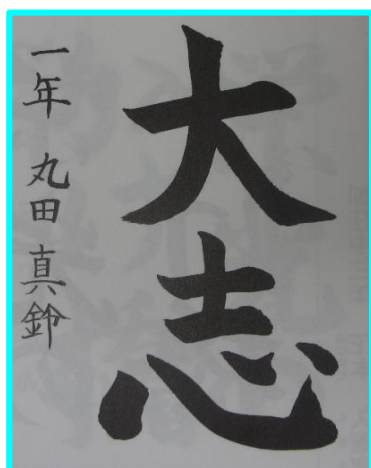 大志
一年 丸田 真鈴